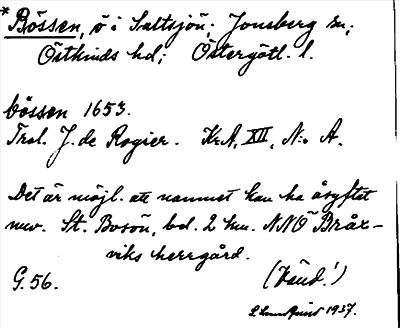 * Bössen, ö i Saltsjön; Jonsberg sn;
Östkinds hd; Östergötl. l.
bössen 1653.
Trol. J. de Rogier. Kr.A, XII, N:o A.
Det är möjl. att namnet kan ha åsyftat
nuv. St. Bosön, bel. 2 km. NNÖ Bråx-
viks herrgård.
G. 56. (Vänd!)
1937.